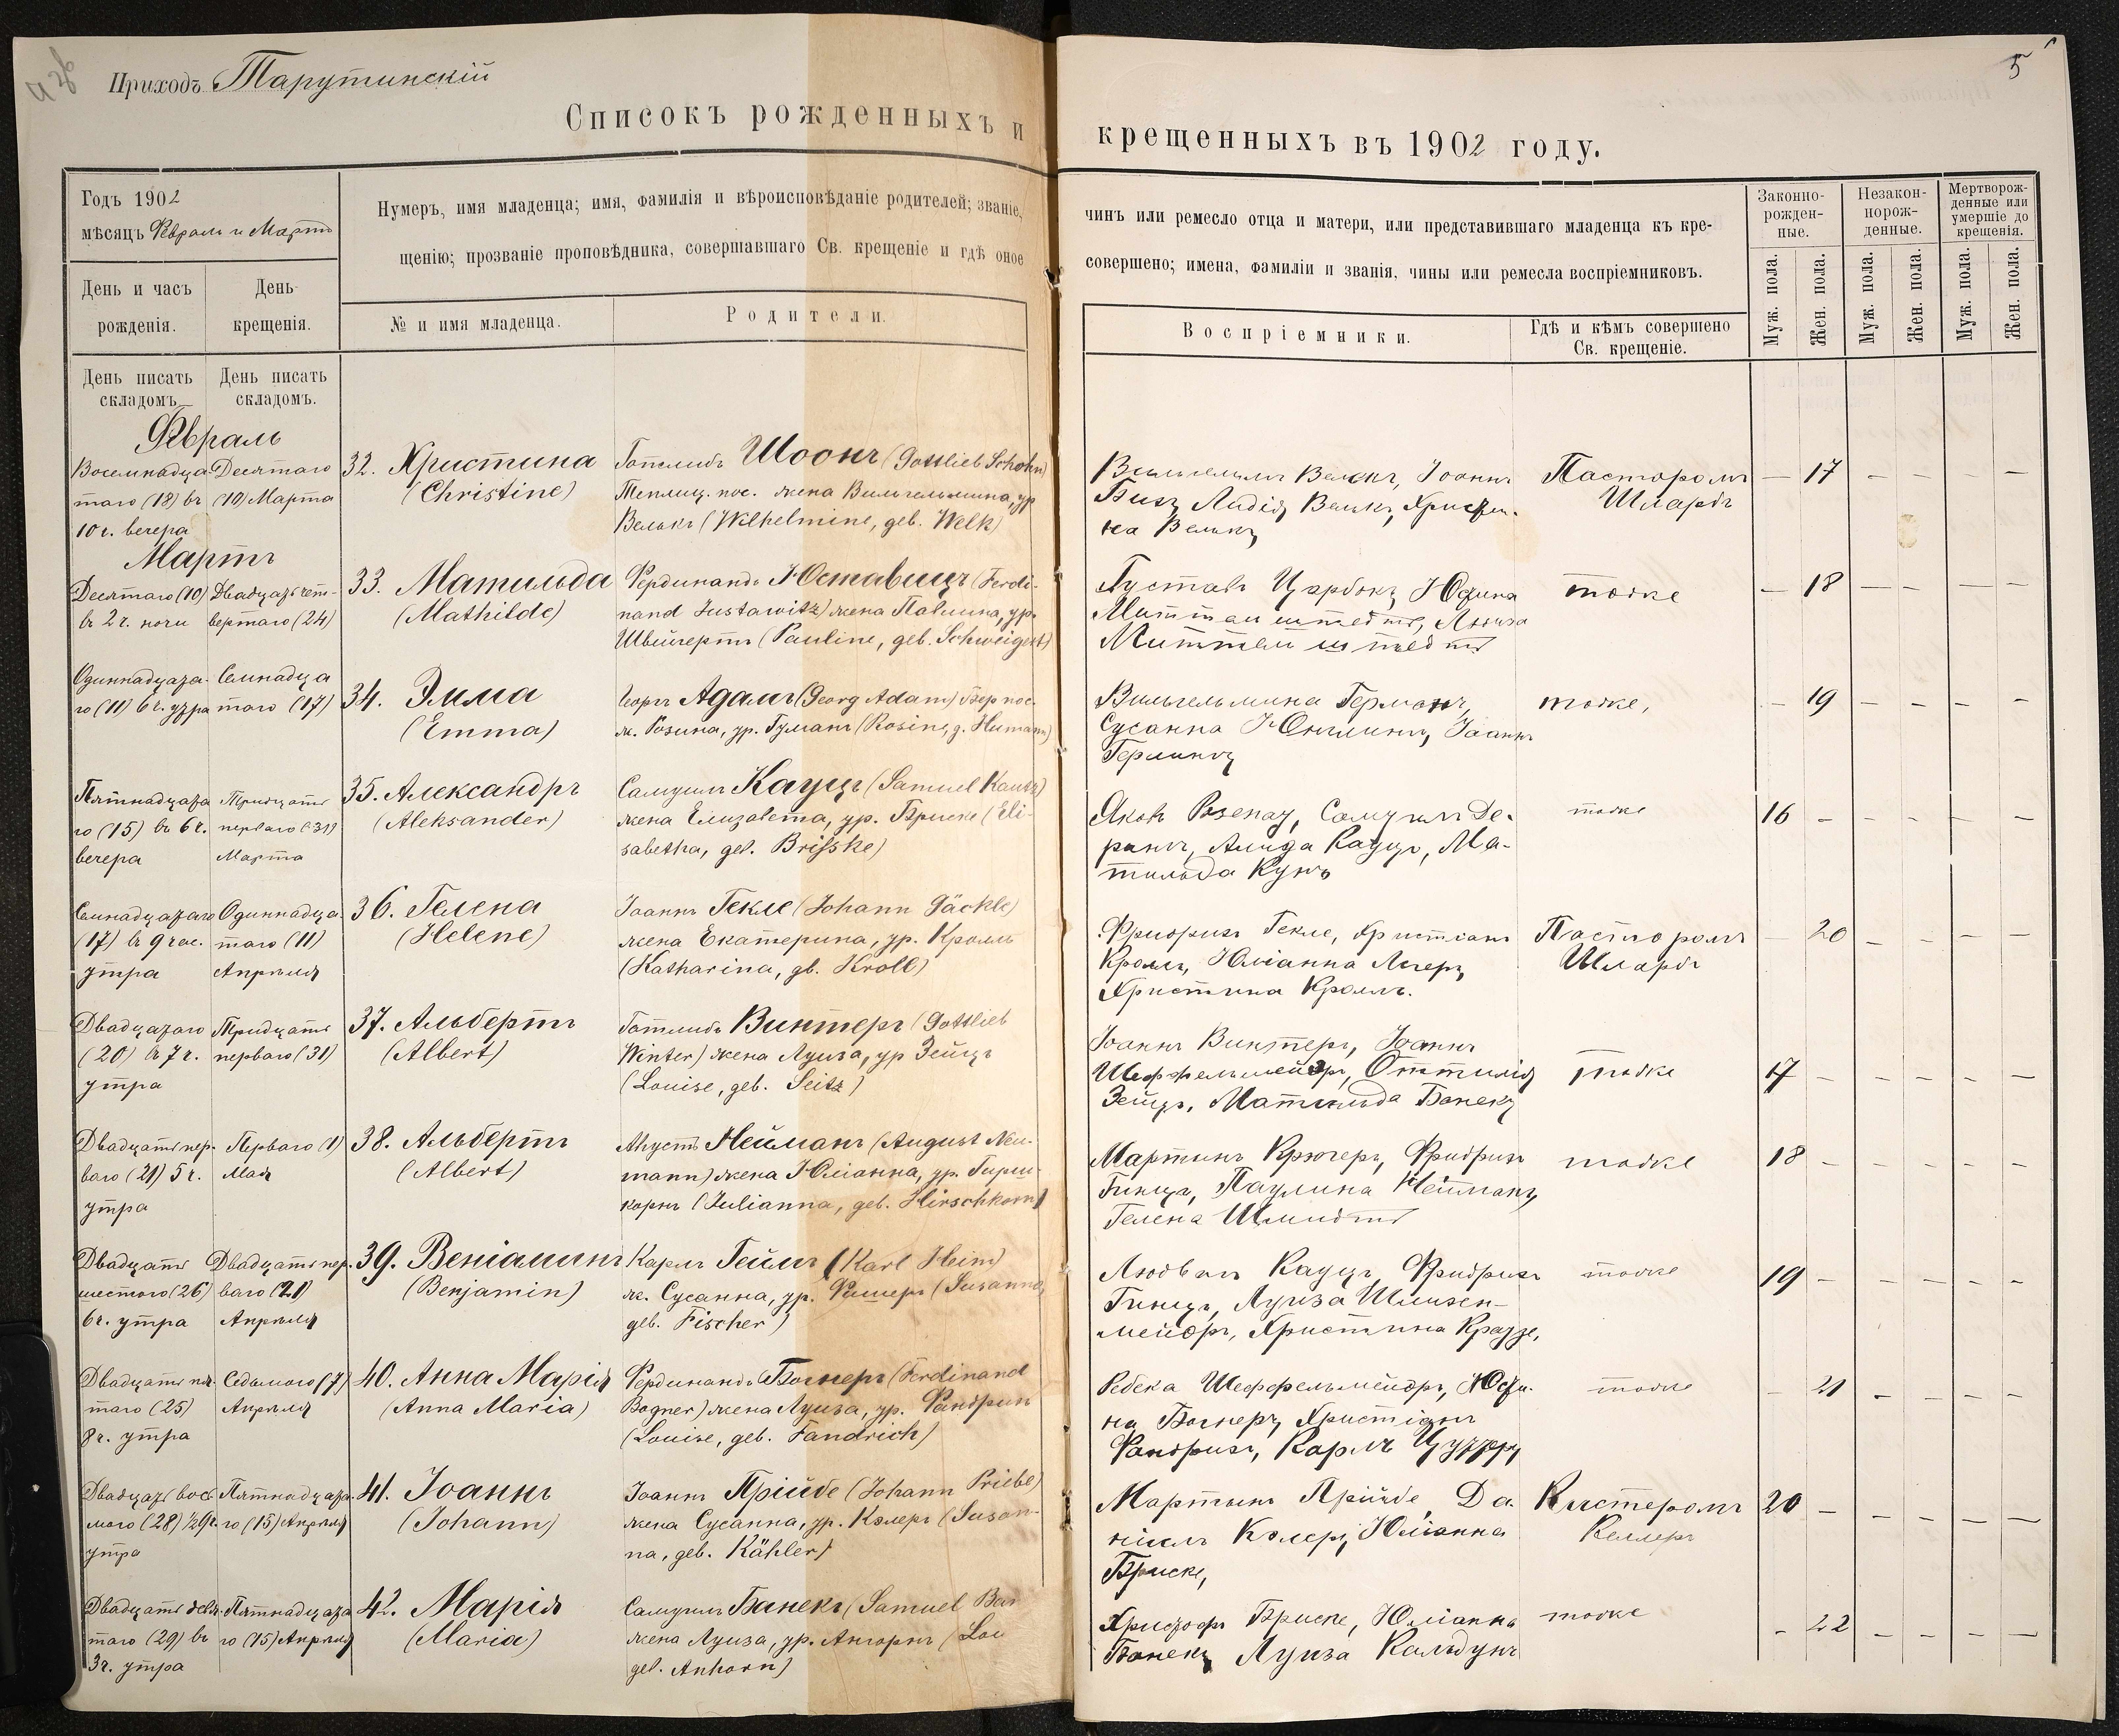 Приходъ Тарутинскій
5
Списокъ рожденныхъ и крещенныхъ въ 1902 году.
Годъ 1902
мѣсяцъ Февраль и Мартъ
Нумеръ, имя младенца; имя, фамилія и вѣроисповѣданіе родителей; званіе, чинъ или ремесло отца и матери, или представившаго младенца къ кре-
щенію; прозваніе проповѣдника, совершавшаго Св. крещеніе и гдѣ оное совершено; имена, фамиліи и званія, чины или ремесла воспріемниковъ.
День и часъ рожденія.
День крещенія.
№ и имя младенца.
Родители.
Воспріемники.
Гдѣ и кѣмъ совершено
Св. крещеніе.
Законно-
рожден-
ные.
Незакон-
норож-
денные.
Мертворож-
денные или
умершіе до
крещенія.
Муж. пола.
Жен. пола.
Муж. пола.
Жен. пола.
Муж. пола.
Жен. пола.
День писать
складомъ
День писать
складомъ.
Февраль
Восемнадца-
таго (18) въ
10 ч. вечера
Десятаго
(10) Марта
32. Христина
(Christine)
Готлибъ Шоонъ (Gottlieb Schohn)
Теплиц. пос. жена Вильгельмина, ур
Велькъ (Wilhelmine, geb. Welk)
Вильгельмъ Велькъ, Іоаннъ
Лидія Велькъ, Христи-
на Велькъ
Пасторомъ
Шлардъ
— 17 — — — —
Мартъ
Десятаго (10)
въ 2 ч. ночи
Двадцать чет-
вертаго (24)
33. Матильда
(Mathilde)
Фердинандъ Юставицъ (Ferdi-
nand Justawitz) жена Павлина, ур.
Швейгертъ (Pauline, geb. Schweigert)
Густавъ Юстина
Миттельштедтъ, Луиза
Миттельштедтъ
тоже
— 18 — — — —
Одиннадцата-
го (11) 6 ч. утра
Семнадца
таго (17)
34. Эмма
(Emma)
Георгъ Адамъ (Georg Adam) Бер. пос.
ж. Розина, ур. Гуманъ (Rosine, g. Humann)
Вильгельмина Германъ,
Сусанна Іоаннъ
тоже,
— 19 — — — —
Пятнадцата
го (15) въ 6 ч.
вечера
Тридцать
перваго (31)
Марта
35. Александръ
(Aleksander)
Самуилъ Кауцъ (Samuel Kautz)
жена Елизавета, ур. Бриске (Eli-
sabetha, geb. Brisske)
Яковъ Розенау, Самуилъ Де-
Кауцъ, Ма-
тильда Кунъ
тоже
16 — — — — —
Семнадцатаго
(17) въ 9 час.
утра
Одиннадца-
таго (11)
Апрѣля
36. Гелена
(Helene)
Іоаннъ Гекле (Johann Jäckle)
жена Екатерина, ур. Кролль
(Katharina, gb. Kroll)
Фридрихъ Гекле, Христіанъ
Кролль, Юліанна
Христина Кролль.
Пасторомъ
Шлардъ
— 20 — — — —
Двадцатаго
(20) въ 7 ч.
утра
Тридцать
перваго (31)
37. Альбертъ
(Albert)
Готлибъ Винтеръ (Gottlieb
Winter) жена Луиза, ур Зейцъ
(Louise, geb. Seitz)
Іоаннъ Винтеръ, Іоаннъ
Шеффельмейеръ, Оттилія
Зейцъ, Матильда Банекъ
тоже
17 — — — — —
Двадцать пер-
ваго (21) 5 ч.
утра
Перваго (1)
Мая
38. Альбертъ
(Albert)
Августъ Нейманъ (August Neu-
mann) жена Юліанна, ур. Гирш-
корнъ (Julianna, geb. Hirschkorn)
Мартинъ Крюгеръ, Фридрихъ
Гинцъ, Паулина Нейманъ,
Гелена Шмидтъ
тоже
18 — — — — —
Двадцать
шестого (26)
6 ч. утра
Двадцать пер-
ваго (21)
Апрѣля
39. Веніаминъ
(Benjamin)
Карлъ Геймъ (Karl Heim)
ж. Сусанна, ур. Фишеръ (Susanna,
geb. Fischer)
Людвигъ Кауцъ, Фридрихъ
Гинцъ, Луиза
Христина Краузе,
тоже
19 — — — — —
Двадцать пя-
таго (25)
8 ч. утра
Седьмого (7)
Апрѣля
40. Анна Марія
(Anna Maria)
Фердинандъ Богнеръ (Ferdinand
Bogner) жена Луиза, ур. Фандрихъ
(Louise, geb. Fandrich)
Ребека Шеффельмейеръ, Юсти-
на Богнеръ, Христіанъ
Фандрихъ, Карлъ
тоже
— 21 — — — —
Двадцать вось-
мого (28) ½9 ч.
утра
Пятнадцата-
го (15) Апрѣля
41. Іоаннъ
(Johann)
Іоаннъ Прійбе (Johann Priebe)
жена Сусанна, ур. Кэлеръ (Susan-
na, geb. Kähler)
Мартынъ Прійбе, Да-
ніилъ Кэлеръ, Юліанна
Бриске,
Кистеромъ
Келлеръ
20 — — — — —
Двадцать девя-
таго (29) въ
3 ч. утра
Пятнадцата
го (15) Апрѣля
42. Марія
(Maria)
Самуилъ Банекъ (Samuel Ban
жена Луиза, ур. Ангорнъ (Lou
geb. Anhorn)
Христофъ Бриске, Юліанна
Банекъ, Луиза Кальдунъ
тоже
— 22 — — — —